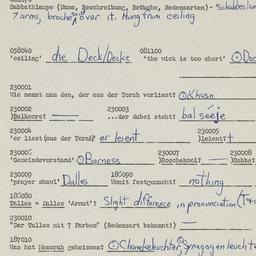 Sabbathlampe (Name, Beschreibung, Bräuche, Redensarten) - Schabbeslam
7 arms, broche said over it. Hung from ceiling
058040 081100
'ceiling' die Deck/Decke 'the wick is too short'
230001
Wie nennt man den, der aus der Torah vorliest? Khasn
230002 230003
)Balkoore? — ...der dabei steht? bal seeje
230004 230005
'er liest (aus der Torah)' er leient )leient? +
230006 230007 230008
'Gemeindevorstand' Barness )Roschekool? — )Gabbe?
230009 186090
'prayer shawl' Dalles Womit festgemacht? nothing
186080
Talles = Dalles 'Armut'? Slight difference in pronunciation
230010
"Der Talles mit 7 Farben" (Redensart bekannt?) —
187010
Was hat Menorah geheissen? Chanukeleuchter, Synagogenleucht